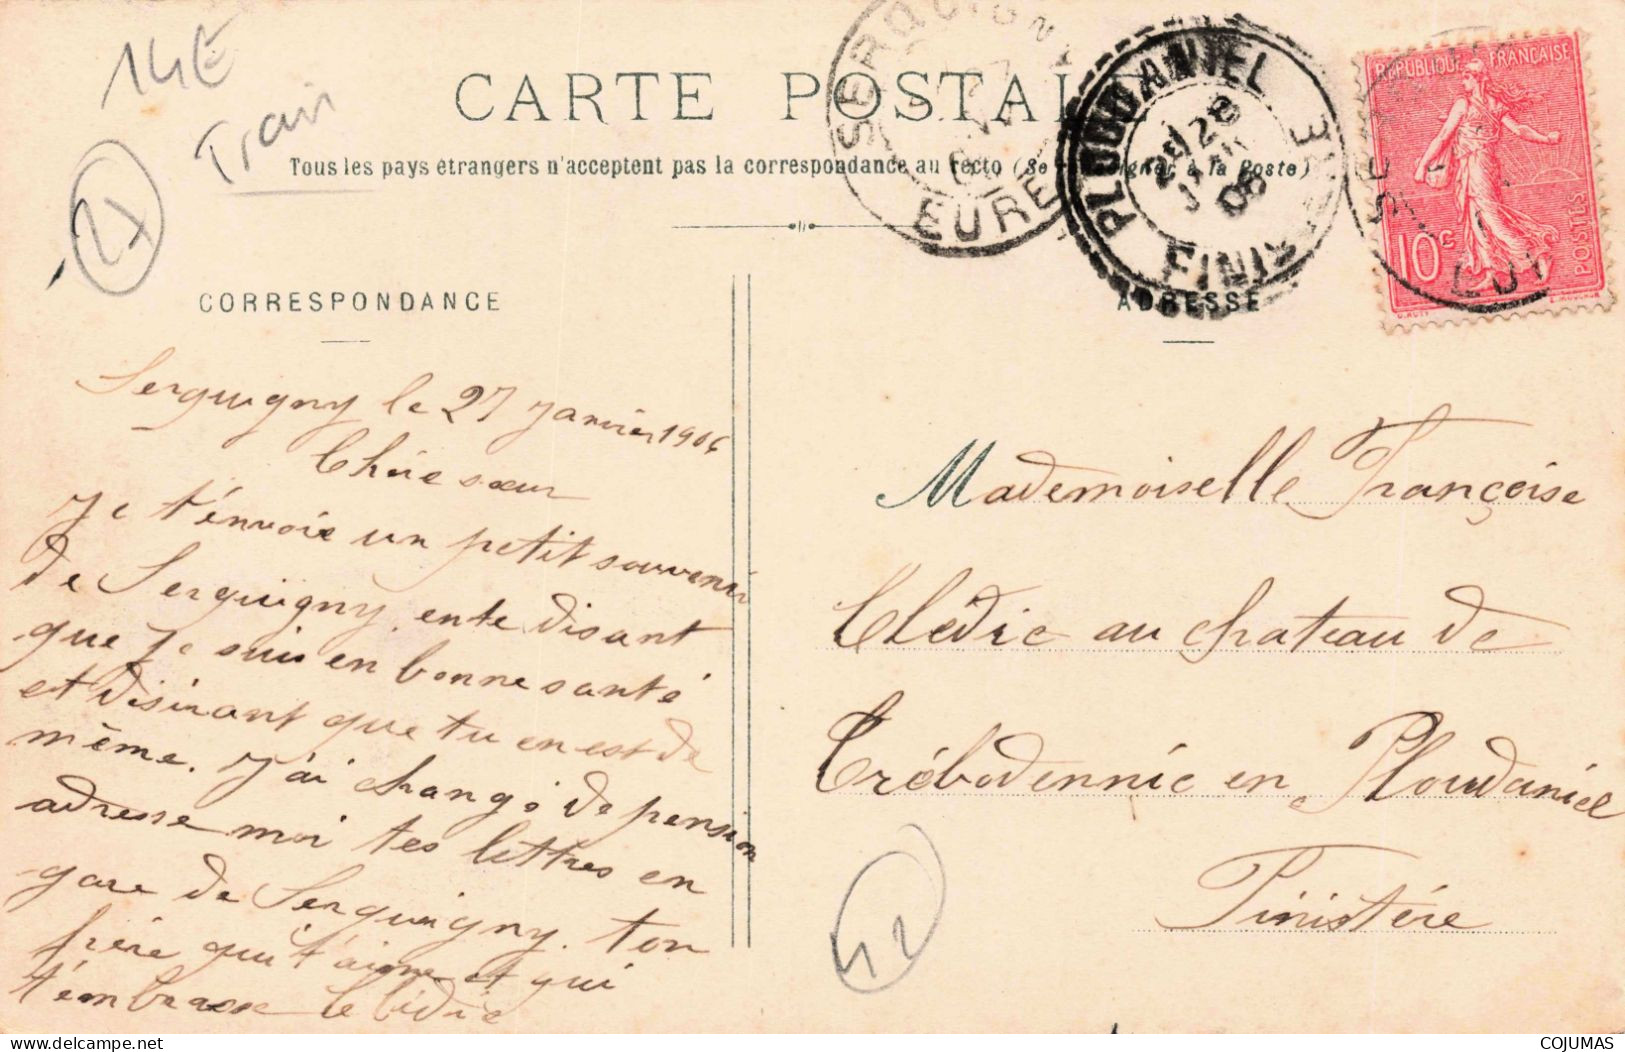 14E
Train
27
CARTE POSTALE
Tous les pays étrangers n'acceptent pas la correspondance au recto (Se à la Poste)
SERQUIGNY
EURE
PLOUDANIEL
28
06
FINISTERE
REPUBLIQUE FRANÇAISE
10c
POSTES
CORRESPONDANCE
ADRESSE
Serquigny le 27 janvier 1906
Chère sœur
Je t'envoie un petit souvenir
de Serquigny, en te disant
que je suis en bonne santé
et désirant que tu en est de
même. J'ai changé de pension
adresse moi tes lettres en
gare de Serquigny. ton
frère qui t'aime et qui
t'embrasse Clédic
Mademoiselle Françoise
Clédic au chateau de
Trébodennic en Ploudaniel
Finistère
42
COJUMAS